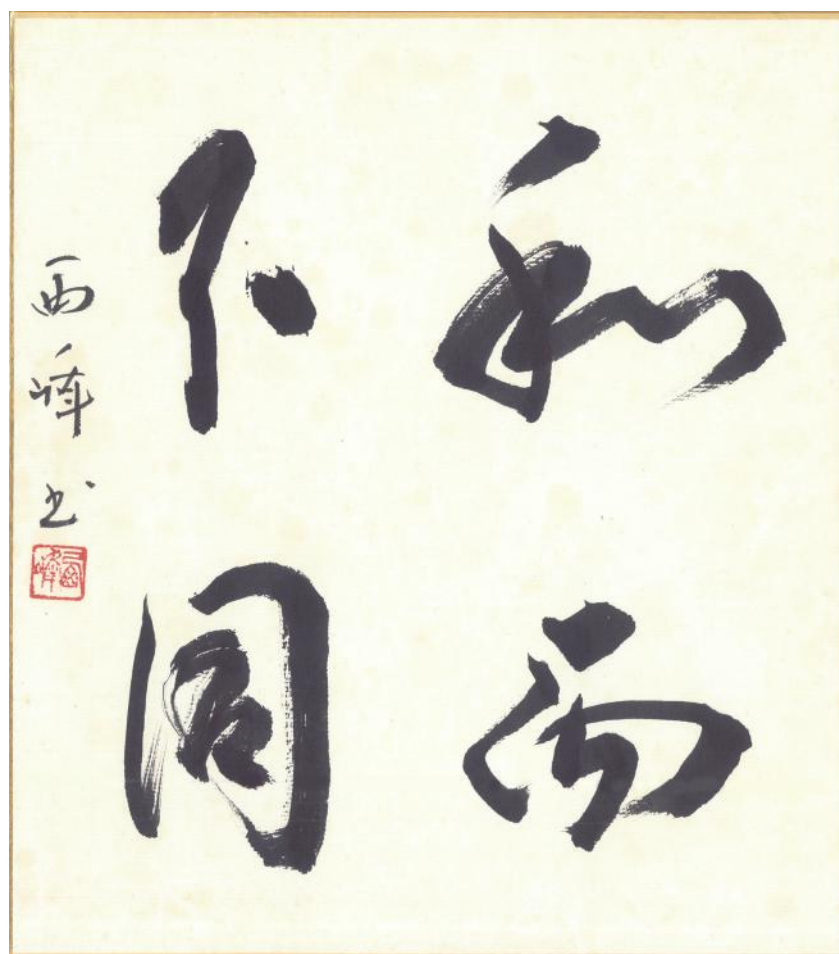 和而
不同
西峰书